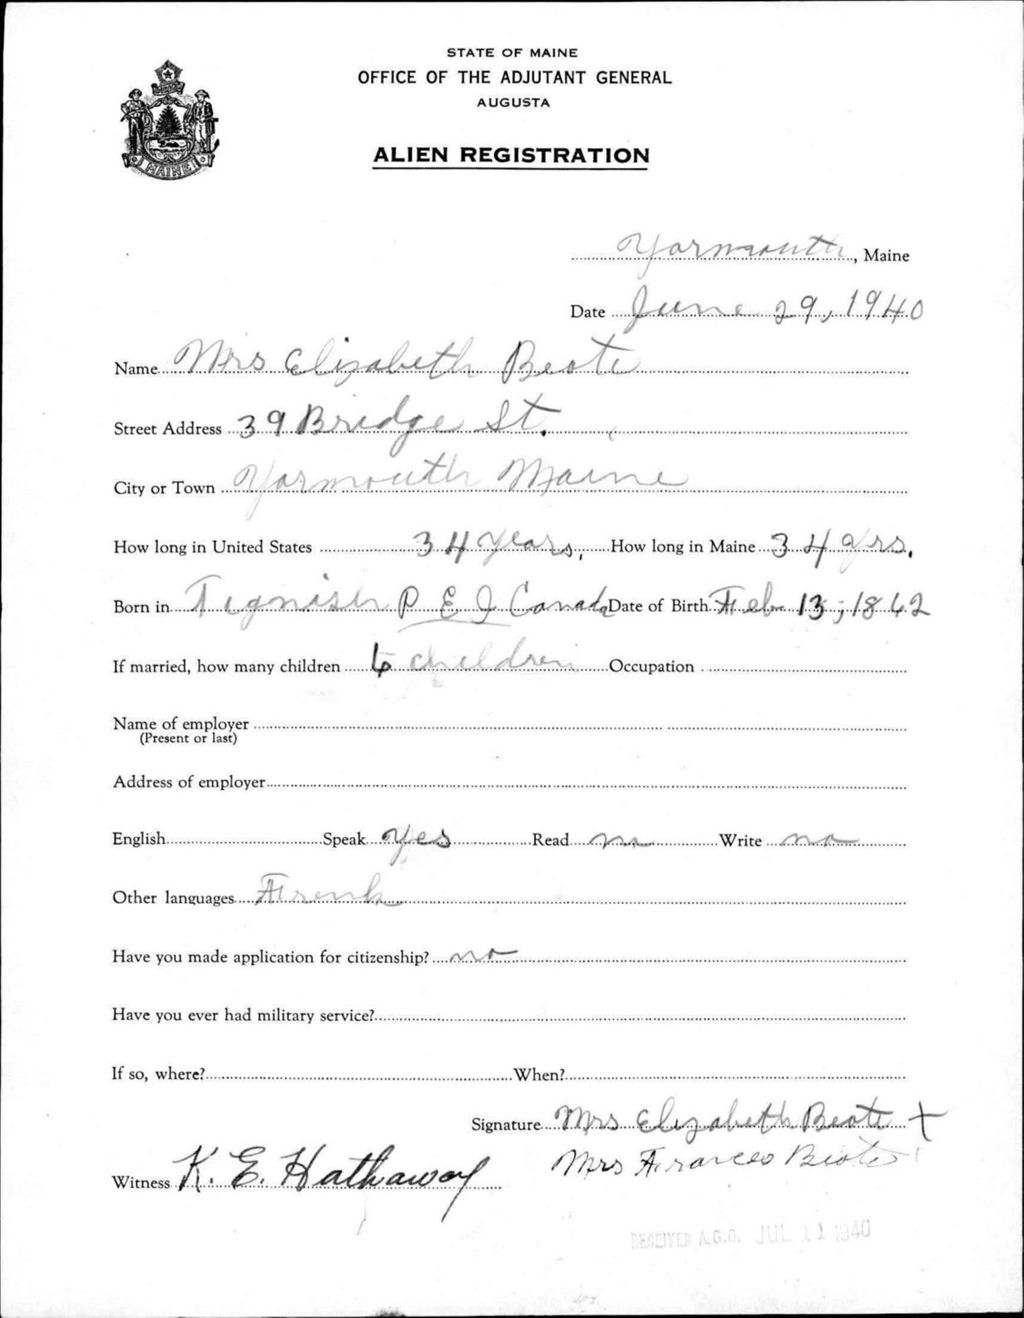 STATE OF MAINE
OFFICE OF THE ADJUTANT GENERAL
AUGUSTA
ALIEN REGISTRATION
MAINE
Yarmouth, Maine
Date June 29, 1940
Name Mrs Elizabeth Beote
Street Address 39 Bridge St.
City or Town Yarmouth Maine
How long in United States 34 years, How long in Maine 34 yrs.
Born in Tignish P E I Canada Date of Birth Feb 13, 1862
If married, how many children 6 children Occupation
Name of employer
(Present or last)
Address of employer
English Speak yes Read no Write no
Other languages Frenh
Have you made application for citizenship? no
Have you ever had military service?
If so, where? When?
Signature Mrs Elizabeth Beote +
Mrs Frances Beote
Witness K. E. Hathaway
RECEIVED A.G.O. JUL 11 1940